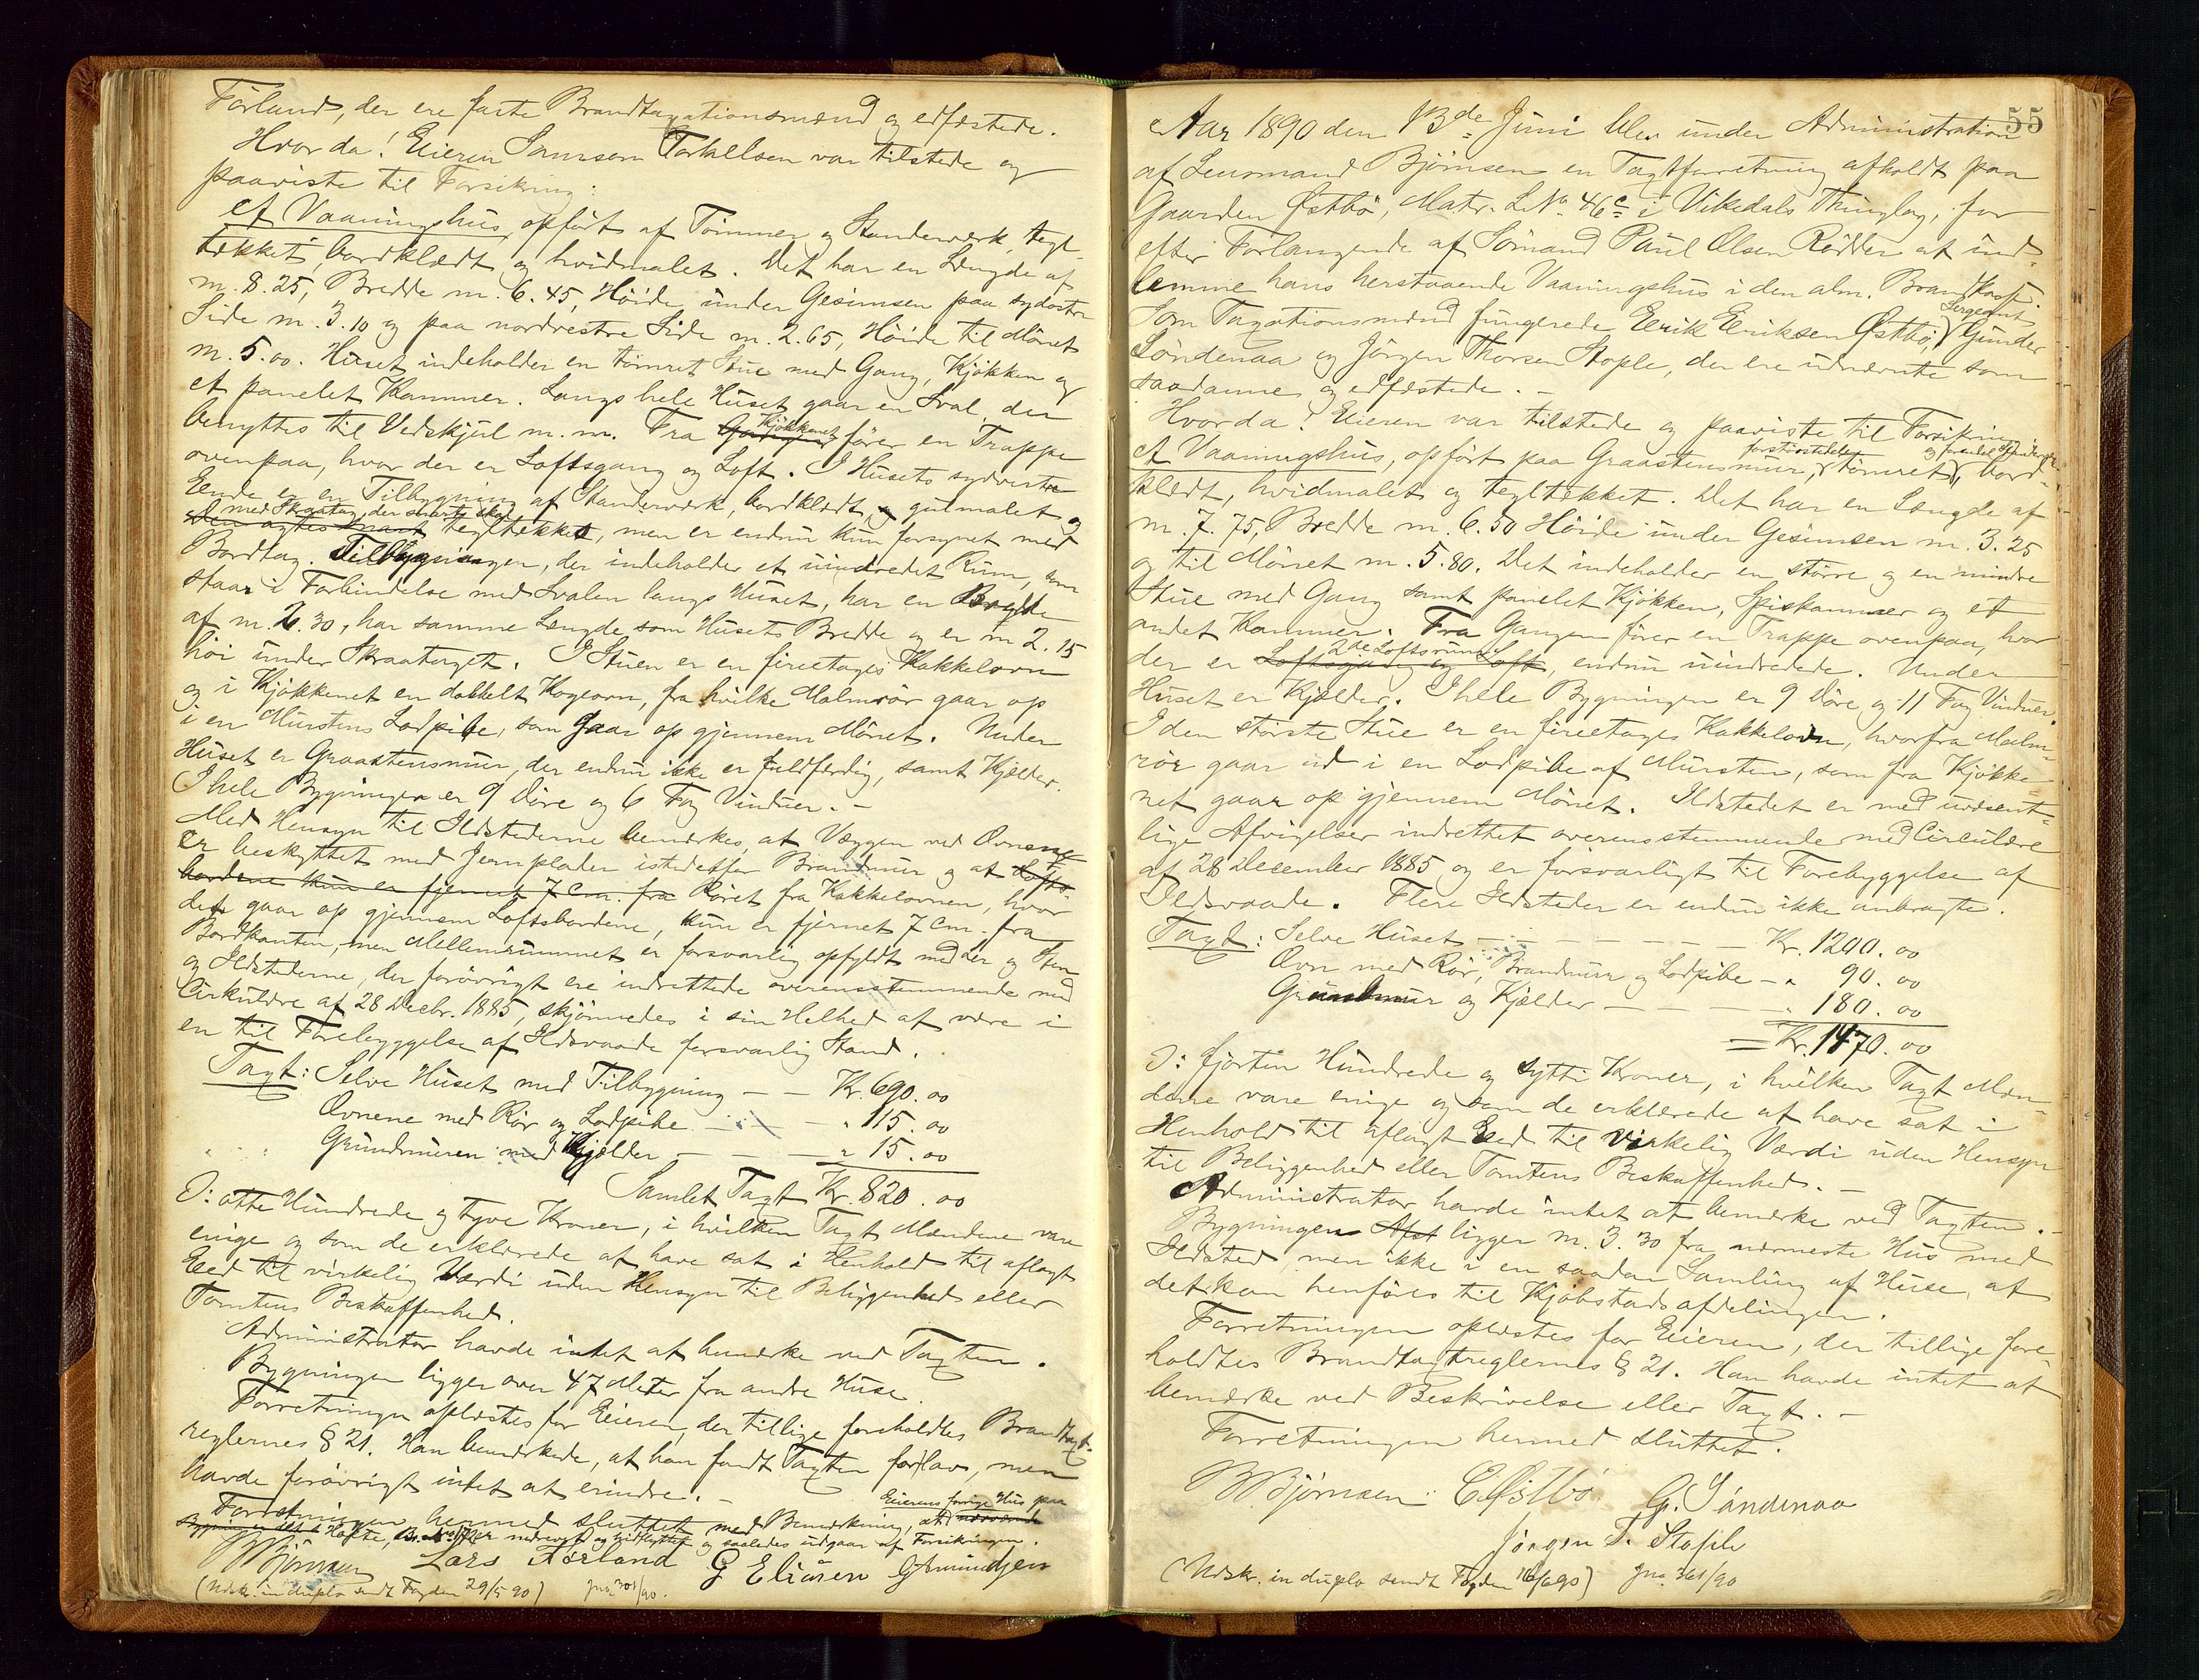 Förland, der ere faste Brandtaxationsmænd og edfæstede.
Hvorda! Eieren Samson Torkellsen var tilstede og
paaviste til Forsikring:
et Vaaningshus, opført af Tømmer og Standerværk, tegl-
tækket, bordklædt og hvidmalet. Det har en Længde af
m. 8.25, Bredde m. 6.45, Høide under Gesimsen paa sydøstre
Side m. 3.10 og paa nordvestre Side m. 2.65, Høide til Mönet
m. 5.00. Huset indeholder en tømret Stue med Gang, Kjøkken og
et panelet Kammer. Langs hele Huset gaar en Sval, der
benyttes til Vedskjul m. m. Fra Gangen Kjøkkenet fører en Trappe
ovenpaa, hvor der er Loftsgang og Loft. I Husets sydvestre
Ende er en Tilbygning af Standerværk, bordklædt og gulmalet og
med Skraatag, der snart skal
den agtes snart tegltækket, men er endnu kun forsynet med
Bordtag. Tilbygningen, der indeholder et uindredet Rum, som
staar i Forbindelse med Svalen langs Huset, har en Bredde
af m. 2.30, har samme Længde som Husets Bredde og er m 2.15
høi under Skraataget. I Stuen er en fireetages Kakkelovn
og i Kjøkkenet en dobbelt Kogeovn, fra hvilke Malmrör gaar op
i en Murstens Lodpibe, som gaar op gjennem Mönet. Under
Huset er Graastensmur, der endnu ikke er fuldfærdig, samt Kjælder.
I hele Bygningen er 9 Döre og 6 Fag Vinduer. –
Med Hensyn til Ildstederne bemærkes, at Væggen ved Ovnene
er beskyttet med Jernplader istedetfor Brandmur og at Lofts-
bordene kun er fjernet 7 cm. fra Röret fra Kakkelovnen, hvor
det gaar op gjennem Loftsbordene, kun er fjernet 7 cm. fra
Bordkanten, men Mellemrummet er forsvarlig opfyldt med Ler og Sten
og Ildstederne, der forøvrigt ere indrettede overensstemmende med
Cirkulære af 28 Decbr. 1885, skjönnedes i sin Helhed at være i
en til Forebyggelse af Ildsvaade forsvarlig Stand.
Taxt: Selve Huset med Tilbygning — — Kr. 690.00
Ovnene med Rör og Lodpibe — — " 115.00
Grundmuren med Kjælder — — — " 15.00
Samlet Taxt Kr. 820.00
ɔ: otte Hundrede og tyve Kroner, i hvilken Taxt Mændene vare
enige og som de erklærede at have sat i Henhold til aflagt
Eed til virkelig Værdi uden Hensyn til Beliggenhed eller
Tomtens Beskaffenhed.
Administrator havde intet at bemærke ved Taxten.
Bygningen ligger over 47 Meter fra andre Huse.
Forretningen oplæstes for Eieren, der tillige foreholdtes Brandtaxt-
reglernes § 21. Han bemærkede, at han fandt Taxten for lav, men
havde forøvrigt intet at erindre. –
Eierens forrige Hus paa
Forretningen hermed sluttet med Bemærkning, at nærværende
er nedrevet og bortflyttet og saaledes udgaar af Forsikringen.
Bjørnsen Lars Førland G Eliasen G Amundsen
(Udsk. in duplo sendt Fogden 29/5 90) Jno. 301/90.
55
Aar 1890 den 13de Juni blev under Administration
af Lensmand Bjørnsen en Taxtforretning afholdt paa
Gaarden Østbö, Matr. L.No. 46c i Vikedals Thinglag, for
efter Forlangende af Sömand Paul Olsen Rödder at ind-
lemme hans herstaaende Vaaningshus i den alm. Brandkasse.
Sergeant
Som Taxationsmænd fungerede Eerik Eeriksen Østbö, Gunder
Söndenaa og Jörgen Thorsen Stople, der ere udnævnte som
saadanne og edfæstede. –
Hvorda! Eieren var tilstede og paaviste til Forsikring:
et Vaaningshus, opført paa Graastensmur, tömret, bord-
klædt, hvidmalet og tegltækket. Det har en Længde af
m. 7.75, Bredde m. 6.50 Höide under Gesimsen m. 3.25
og til Mönet m. 5.80. Det indeholder en större og en mindre
Stue med Gang samt panelet Kjökken, Spiskammer og et
andet Kammer. Fra Gangen förer en Trappe ovenpaa, hvor
der er Loftsgang og Loft 2de Loftsrum, endnu uindredede. Under
Huset er Kjælder. I hele Bygningen er 9 Döre og 11 Fag Vinduer.
I den störste Stue er en fireetages Kakkelovn, hvorfra Malm-
rör gaar ud i en Lodpibe af Mursten, som fra Kjökke-
net gaar op gjennem Mönet. Ildstedet er med uvæsent-
lige Afvigelser indrettet overensstemmende med Circulære
af 28 December 1885 og er forsvarligt til Forebyggelse af
Ildsvaade. Flere Ildsteder er endnu ikke anbragte.
Taxt: Selve Huset — — — — — — Kr. 1200.00
Ovn med Rör, Brandmur og Lodpibe — " 90.00
Grundmur og Kjælder — — — — " 180.00
= Kr. 1470.00
ɔ: fjorten Hundrede og sytti Kroner, i hvilken Taxt Mæn-
dene vare enige og som de erklærede at have sat i
Henhold til aflagt Eed til virkelig Værdi uden Hensyn
til Beliggenhed eller Tomtens Beskaffenhed. –
Administrator havde intet at bemærke ved Taxten. –
Bygningen Afst ligger m. 3.30 fra nærmeste Hus med
Ildsted, men ikke i en saadan Samling af Huse, at
det kan henföres til Kjöbstadsafdelingen.
Forretningen oplæstes for Eieren, der tillige fore-
holdtes Brandtaxtreglernes § 21. Han havde intet at
bemærke ved Beskrivelse eller Taxt. –
Forretningen hermed sluttet.
Bjørnsen E. Østbö G. Söndenaa
Jörgen T. Stople
(Udskr. in duplo sendt Fogden 16/6 90) Jno. 361/90